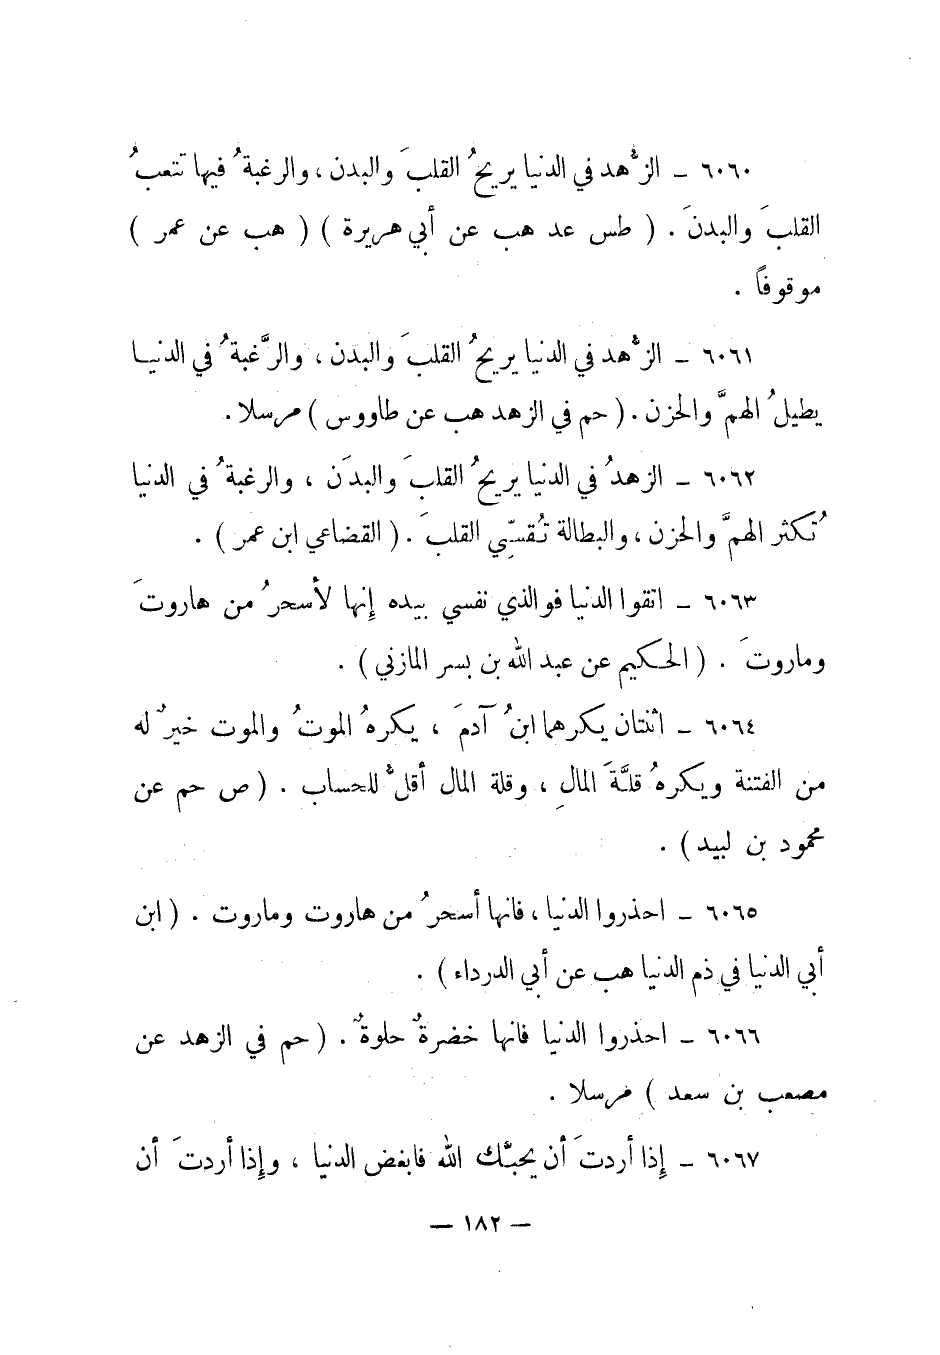 ٦٠٦٠ – الزُّهد في الدنيا يريحُ القلبَ والبدن ، والرغبةُ فيها تتعبُ
القلبَ والبدنَ . ( طس عد هب عن أبي هريرة ) ( هب عن عمر )
موقوفاً .
٦٠٦١ – الزُّهد في الدنيا يريحُ القلبَ والبدن ، والرَّغبةُ في الدنيا
يطيلُ الهمَّ والحزن . ( حم في الزهد هب عن طاووس ) مرسلا .
٦٠٦٢ – الزهدُ في الدنيا يريحُ القلبَ والبدَن ، والرغبةُ في الدنيا
تُكثر الهمَّ والحزن ، والبطالة تُقسِّي القلبَ . ( القضاعي ابن عمر ) .
٦٠٦٣ – اتقوا الدنيا فوالذي نفسي بيده إنها لأسحرُ من هاروتَ
وماروتَ . ( الحكيم عن عبد الله بن بسر المازني ) .
٦٠٦٤ – اثنتان يكرهما ابنُ آدمَ ، يكرهُ الموتُ والموت خيرٌ له
من الفتنة ويكرهُ قلَّةَ المالِ ، وقلة المال أقلُّ للحساب . ( ص حم عن
محمود بن لبيد ) .
٦٠٦٥ – احذروا الدنيا ، فانها أسحرُ من هاروت وماروت . ( ابن
أبي الدنيا في ذم الدنيا هب عن أبي الدرداء ) .
٦٠٦٦ – احذروا الدنيا فانها خضرةٌ حلوةٌ . ( حم في الزهد عن
مصعب بن سعد ) مرسلا .
٦٠٦٧ – إذا أردتَ أن يحبَّك الله فابغض الدنيا ، وإذا أردتَ أن
– ١٨٢ –